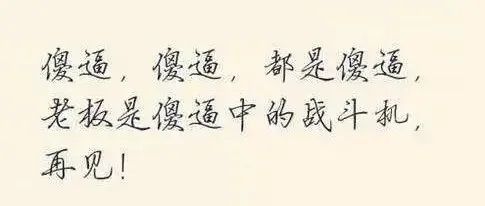 傻逼，傻逼，都是傻逼，
老板是傻逼中的战斗机，
再见！